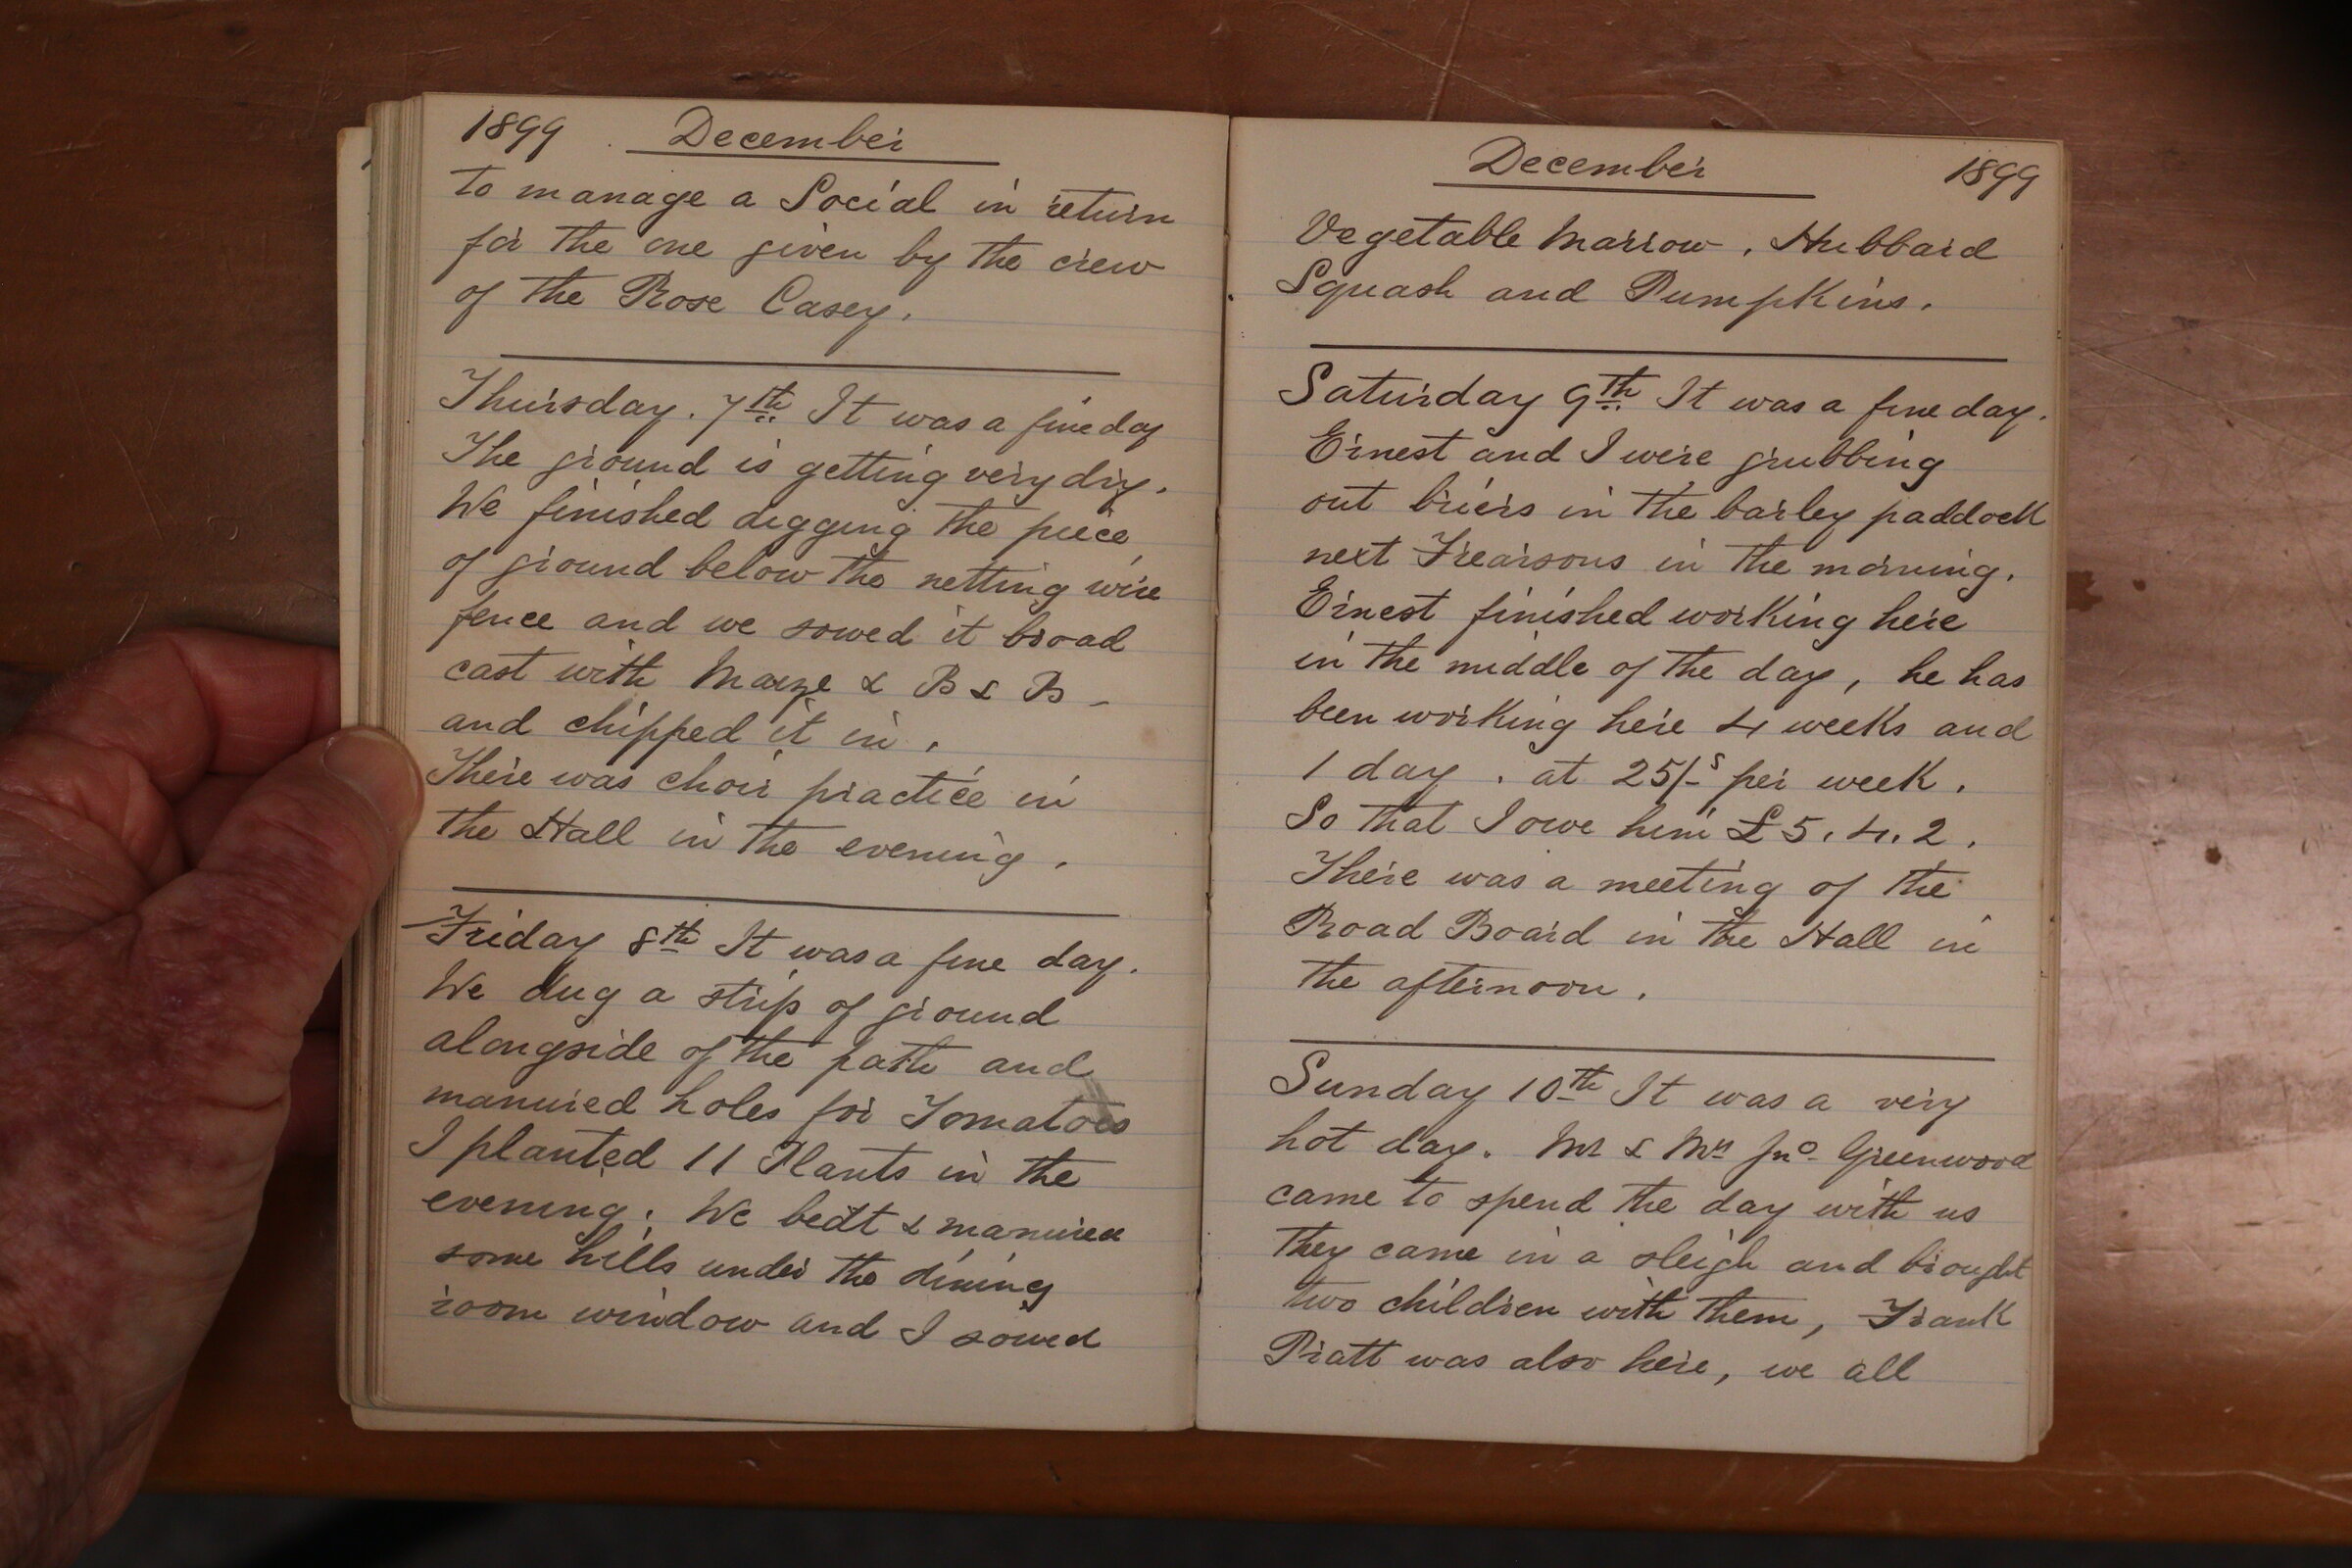 1899 December
to manage a Social in return
for the one given by the crew
of the Rose Casey.
Thursday. 7th It was a fine day
The ground is getting very dry.
We finished digging the piece
of ground below the netting wire
fence and we sowed it broad
cast with Maize & B & B -
and chipped it in.
There was choir practice in
the Hall in the evening.
Friday 8th It was a fine day.
We dug a strip of ground
alongside of the path and
manured holes for Tomatoes
I planted 11 Plants in the
evening. We & manured
some hills under the dining
room window and I sowed
December 1899
Vegetable Marrow, Hubbard
Squash and Pumpkins.
Saturday 9th It was a fine day.
Ernest and I were grubbing
out briers in the barley paddock
next Frearsons in the morning.
Ernest finished working here
in the middle of the day, he has
been working here 4 weeks and
1 day. at 25/-s per week.
So that I owe him £5.4.2.
There was a meeting of the
Road Board in the Hall in
the afternoon.
Sunday 10th It was a very
hot day. Mr & Mrs Jno. Greenwood
came to spend the day with us
they came in a sleigh and brought
two children with them, Frank
Pratt was also here, we all